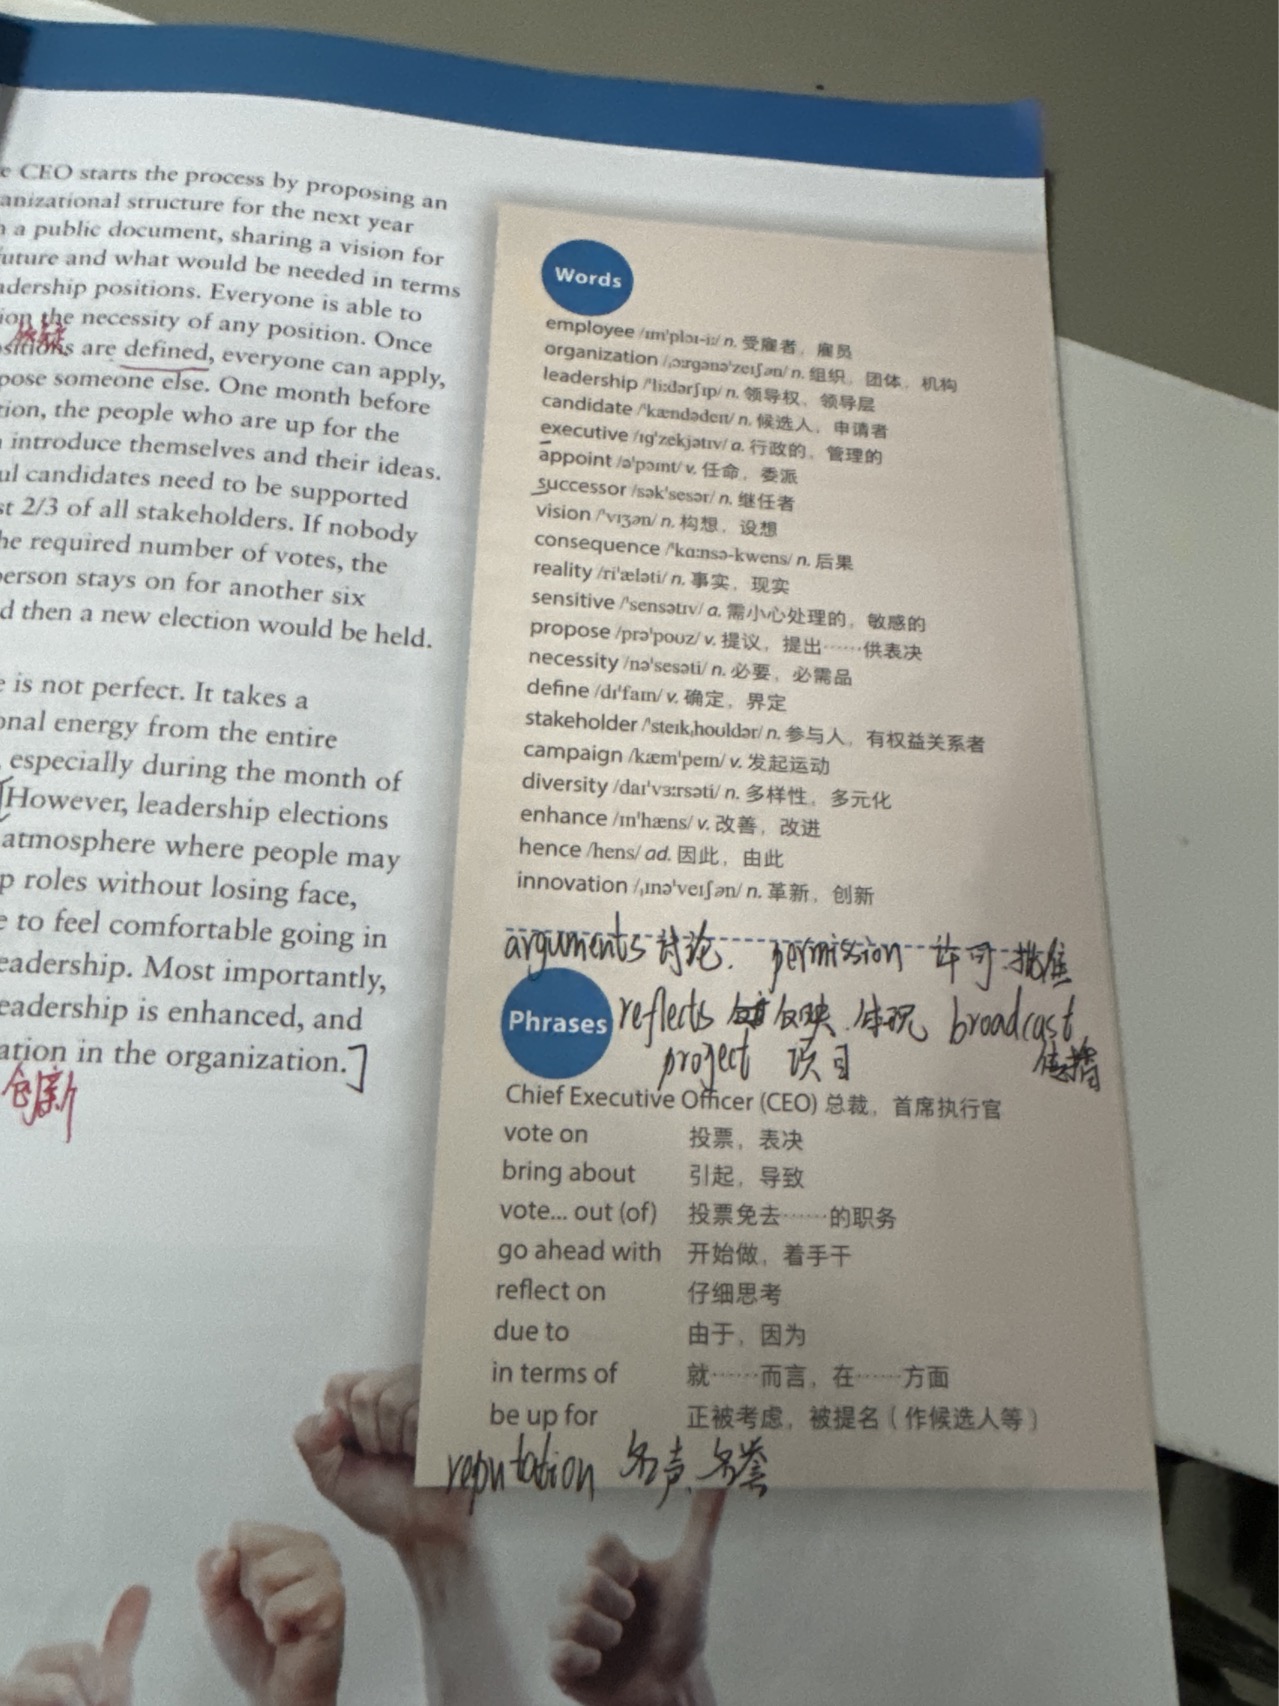 e CEO starts the process by proposing an
anizational structure for the next year
a public document, sharing a vision for
future and what would be needed in terms
adership positions. Everyone is able to
ion the necessity of any position. Once
sitions are defined, everyone can apply,
pose someone else. One month before
tion, the people who are up for the
introduce themselves and their ideas.
ul candidates need to be supported
st 2/3 of all stakeholders. If nobody
he required number of votes, the
person stays on for another six
d then a new election would be held.
e is not perfect. It takes a
onal energy from the entire
, especially during the month of
[However, leadership elections
atmosphere where people may
p roles without losing face,
e to feel comfortable going in
eadership. Most importantly,
eadership is enhanced, and
ation in the organization.]
创新
Words
employee /ɪmˈplɔɪ-iː/ n. 受雇者，雇员
organization /ˌɔːrɡənəˈzeɪʃən/ n. 组织，团体，机构
leadership /ˈliːdərʃɪp/ n. 领导权，领导层
candidate /ˈkændədeɪt/ n. 候选人，申请者
executive /ɪɡˈzekjətɪv/ a. 行政的，管理的
appoint /əˈpɔɪnt/ v. 任命，委派
successor /səkˈsesər/ n. 继任者
vision /ˈvɪʒən/ n. 构想，设想
consequence /ˈkɑːnsə-kwens/ n. 后果
reality /riˈæləti/ n. 事实，现实
sensitive /ˈsensətɪv/ a. 需小心处理的，敏感的
propose /prəˈpoʊz/ v. 提议，提出……供表决
necessity /nəˈsesəti/ n. 必要，必需品
define /dɪˈfaɪn/ v. 确定，界定
stakeholder /ˈsteɪkˌhoʊldər/ n. 参与人，有权益关系者
campaign /kæmˈpeɪn/ v. 发起运动
diversity /daɪˈvɜːrsəti/ n. 多样性，多元化
enhance /ɪnˈhæns/ v. 改善，改进
hence /hens/ ad. 因此，由此
innovation /ˌɪnəˈveɪʃən/ n. 革新，创新
arguments 讨论. permission 许可.批准
Phrases
reflects 反映.体现 broadcast
project 项目 传播
Chief Executive Officer (CEO) 总裁，首席执行官
vote on 投票，表决
bring about 引起，导致
vote... out (of) 投票免去……的职务
go ahead with 开始做，着手干
reflect on 仔细思考
due to 由于，因为
in terms of 就……而言，在……方面
be up for 正被考虑，被提名（作候选人等）
reputation 名声.名誉